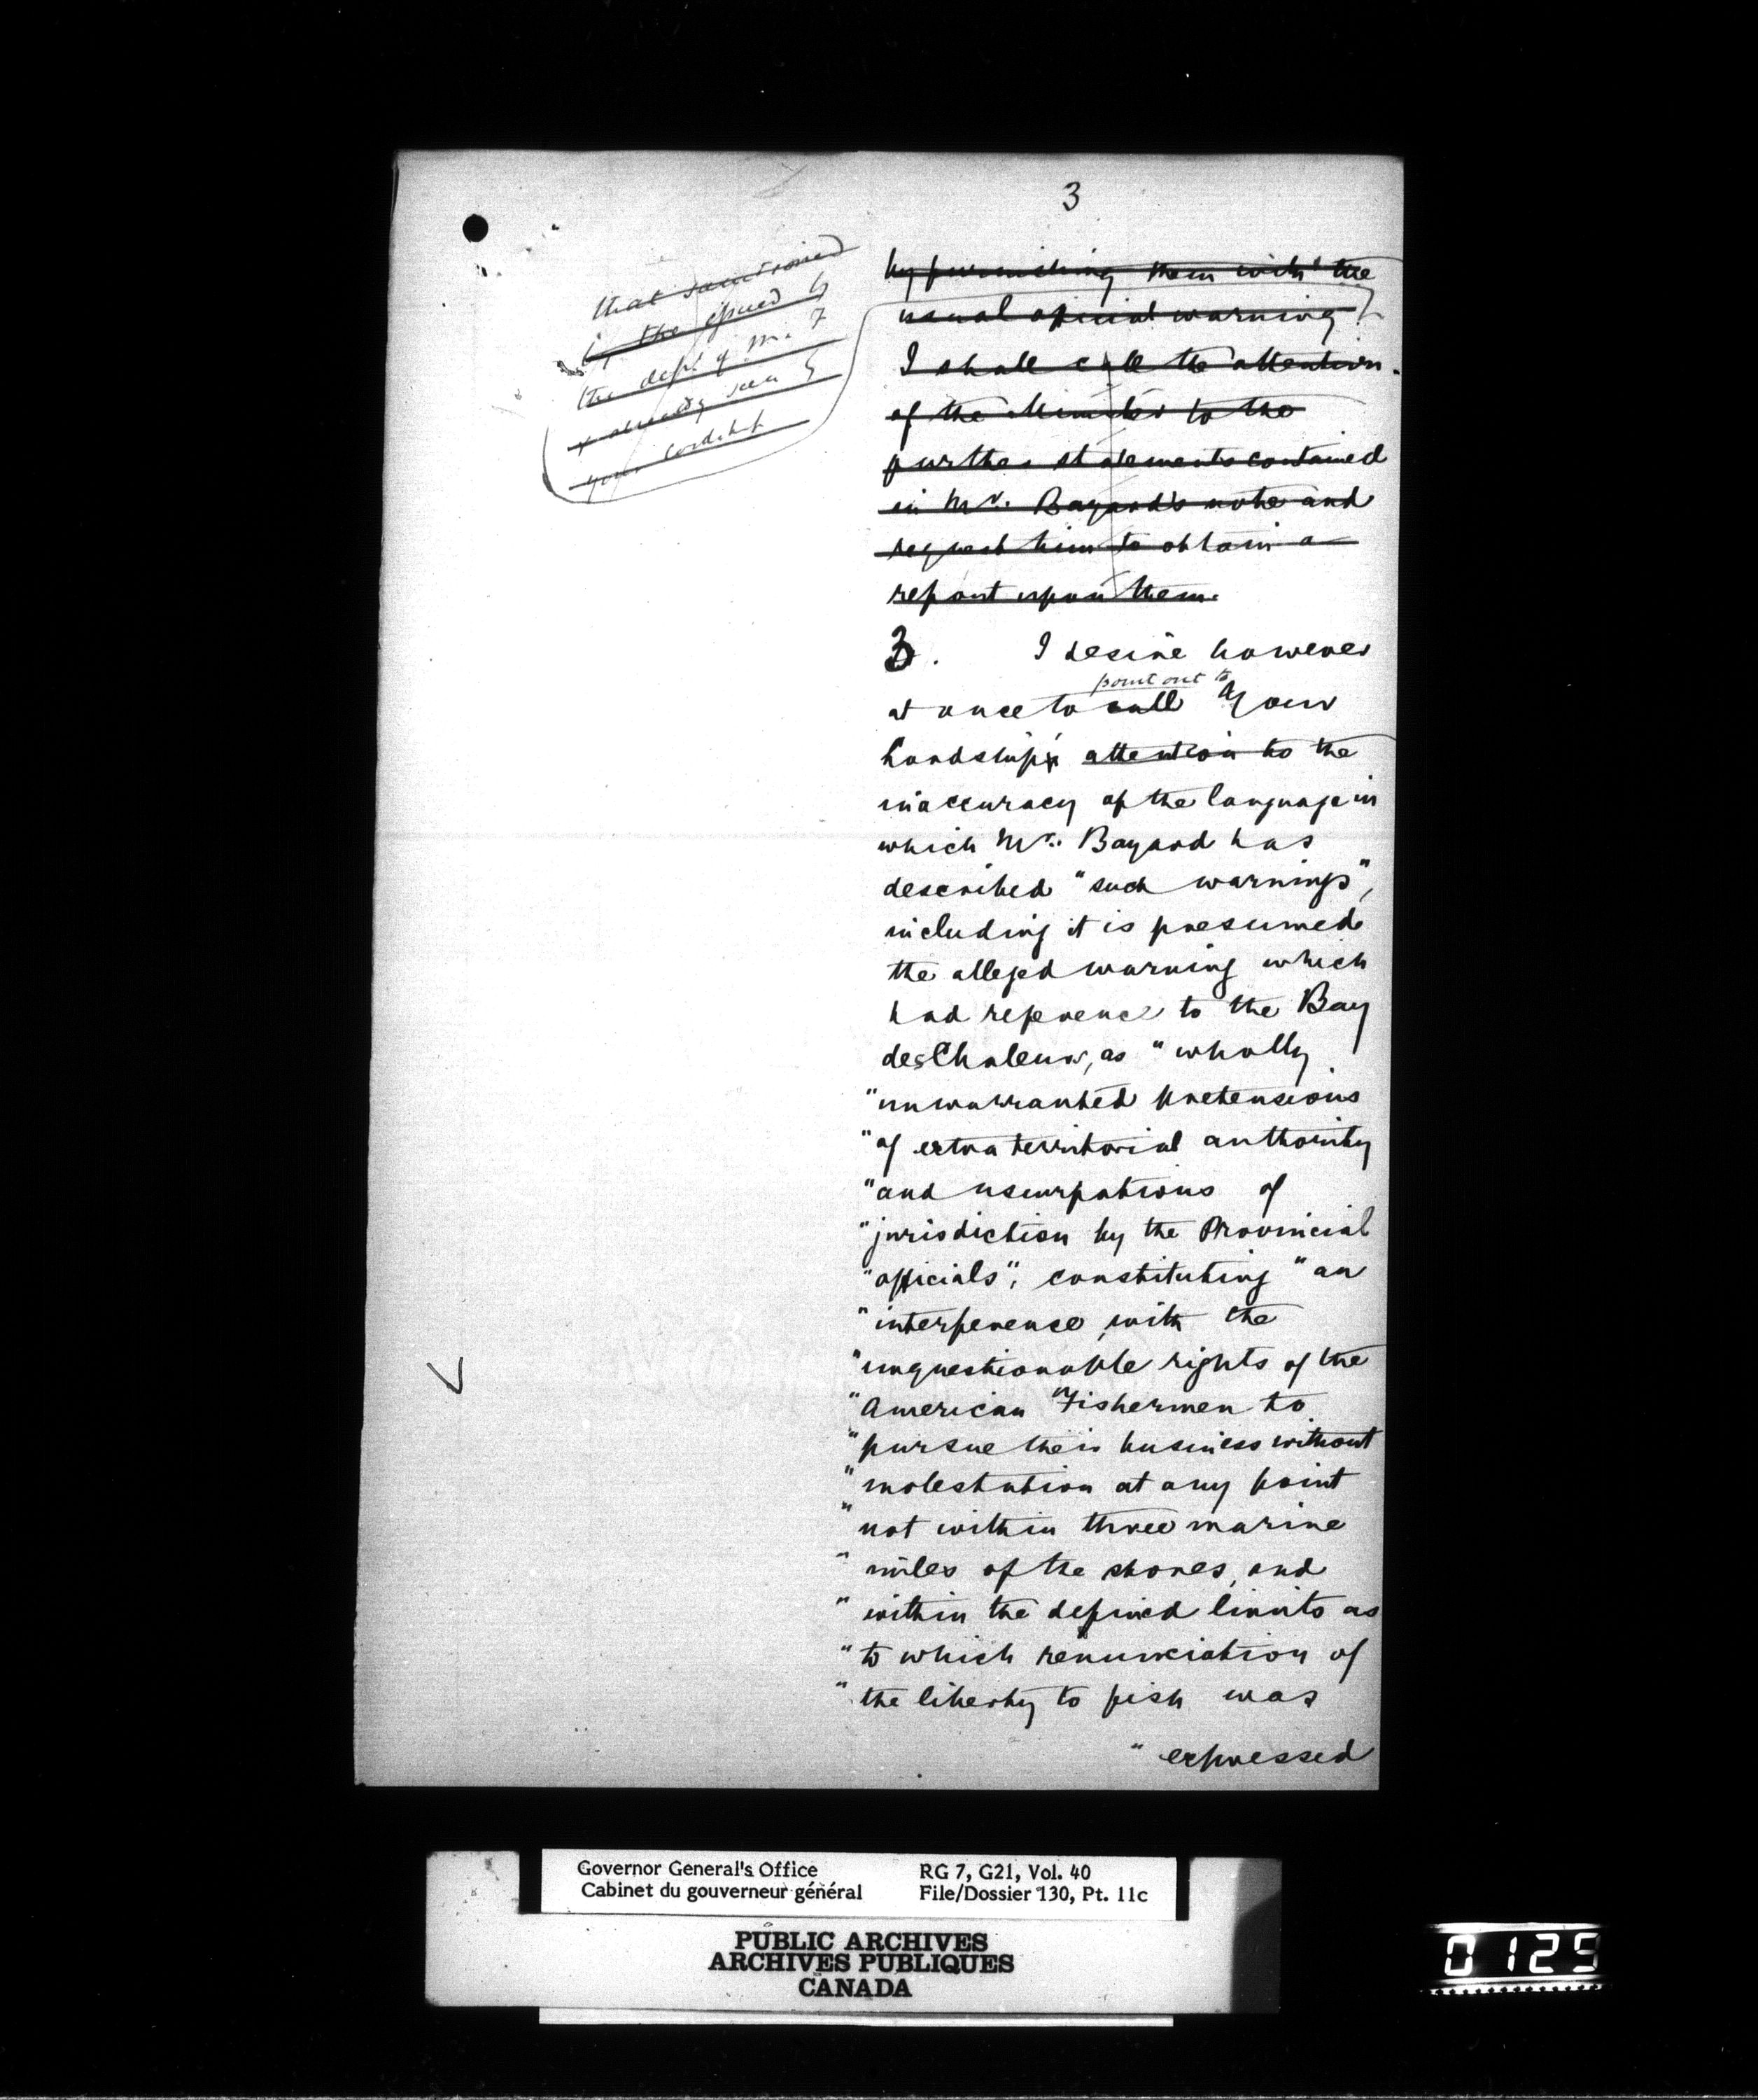 3
that sanctioned
by the issued by
the dept of M. F
& already seen by
your Lordship
by furnishing them with the
usual official warning
I shall call the attention
of the Minister to the
further statements contained
in Mr. Bayard's note and
request him to obtain a
report upon them.
3. I desire however
point out to
at once to call Your
Lordship's attention to the
inaccuracy of the language in
which Mr. Bayard has
described "such warnings",
including it is presumed
the alleged warning which
had reference to the Bay
des Chaleur, as "wholly
"unwarranted pretensions
"of extra territorial authority
"and usurpations of
"jurisdiction by the Provincial
"officials", constituting "an
"interference with the
"unquestionable rights of the
"American Fishermen to
"pursue their business without
"molestation at any point
"not within three marine
"miles of the shores, and
"within the defined limits as
"to which renunciation of
"the liberty to fish was
"expressed
Governor General's Office
Cabinet du gouverneur général
RG 7, G21, Vol. 40
File/Dossier 130, Pt. 11c
PUBLIC ARCHIVES
ARCHIVES PUBLIQUES
CANADA
0125